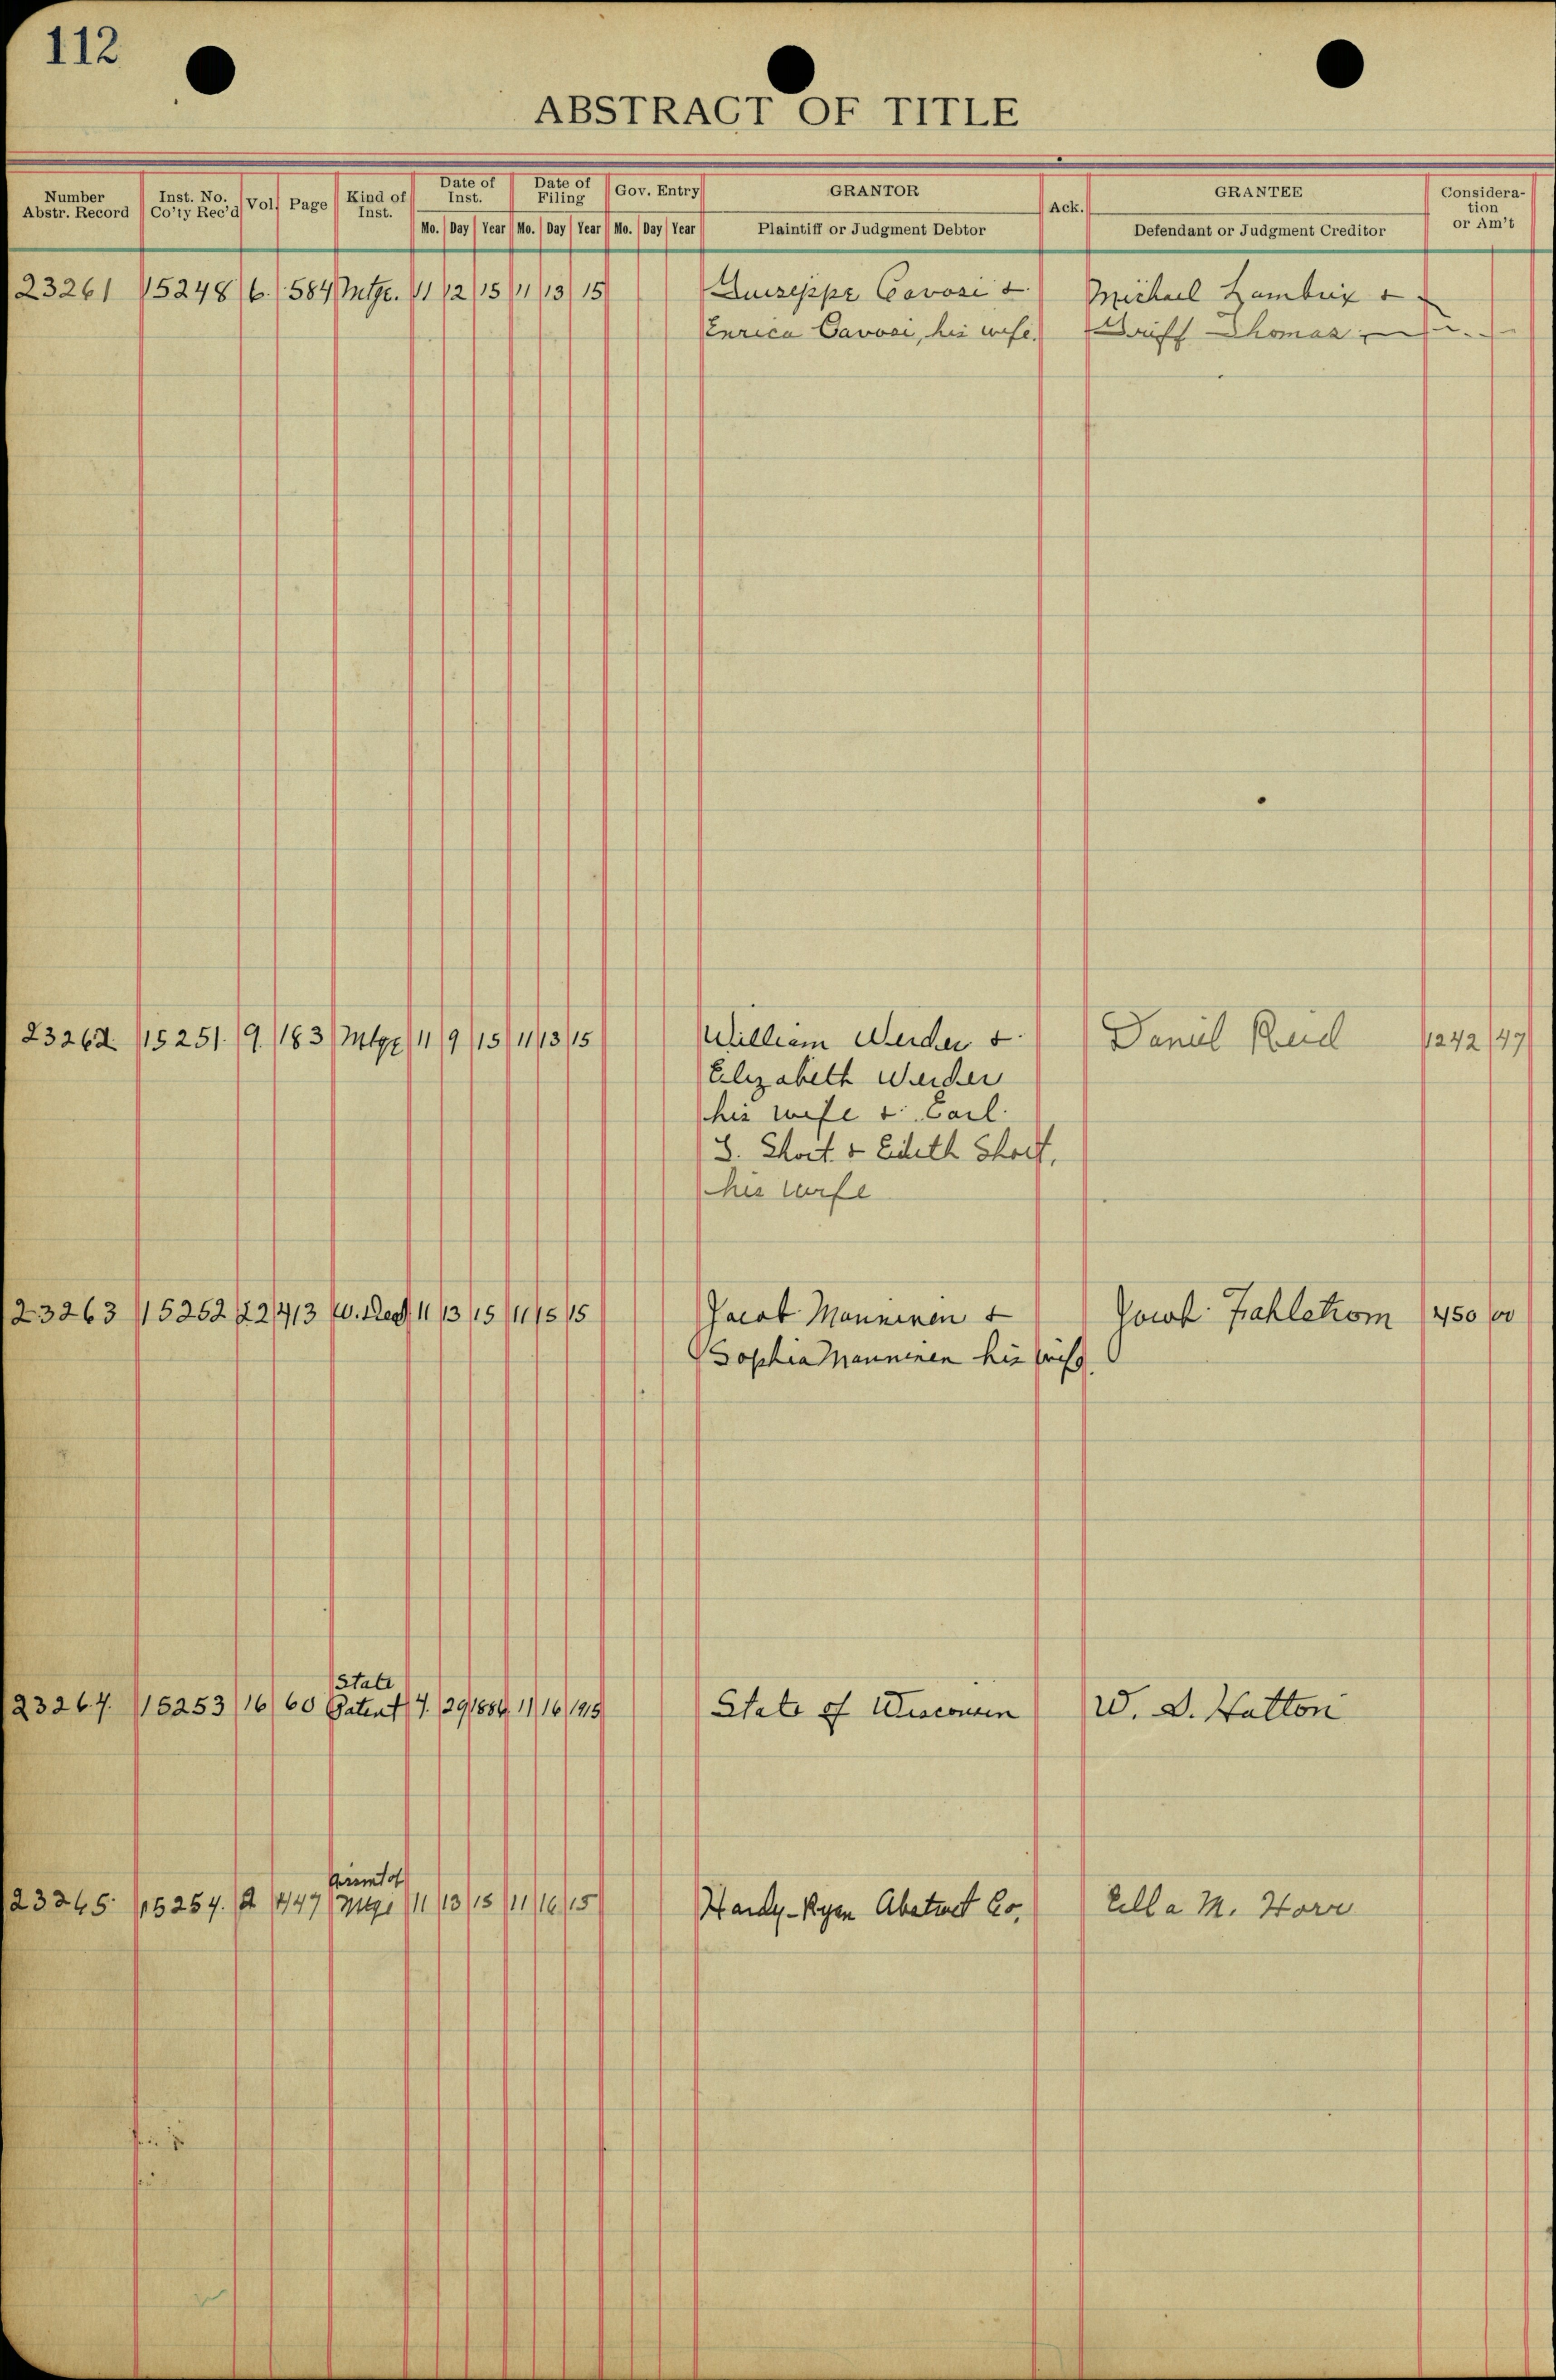 112
ABSTRACT OF TITLE
Number Abstr. Record Inst. No. Co'ty Rec'd Vol Page Kind of Inst. Date of Inst. Date of Filing Gov. Entry GRANTOR Ack. GRANTEE Consideration or Am't
Mo. Day Year Mo. Day Year Mo. Day Year Plaintiff or Judgment Debtor Defendant or Judgment Creditor
23261 15248 6. 584 Mtge. 11 12 15 11 13 15 Guiseppe Cavosi & Michael Lambrix &
Enrica Cavosi, his wife. Thomas
23262 15251. 9. 183 Mtge 11 9 15 11 13 15 William Weider & Daniel Reid 1242 47
Elizabeth Weider
his wife & Earl
S. Short & Edith Short,
his wife
23263 15252 22 413 W. Deed 11 13 15 11 15 15 Jacob Manninen & Fahlstrom 450 00
Sophia Manninen his wife
State
23264. 15253 16 60 Patent 7. 29 1884 11 16 1915 State of Wisconsin W. D. Hatton
23265. 15254. 2 447 Mtge 11 13 15 11 16 15 Hardy-Ryan Abstract Co. Ella M. Horr